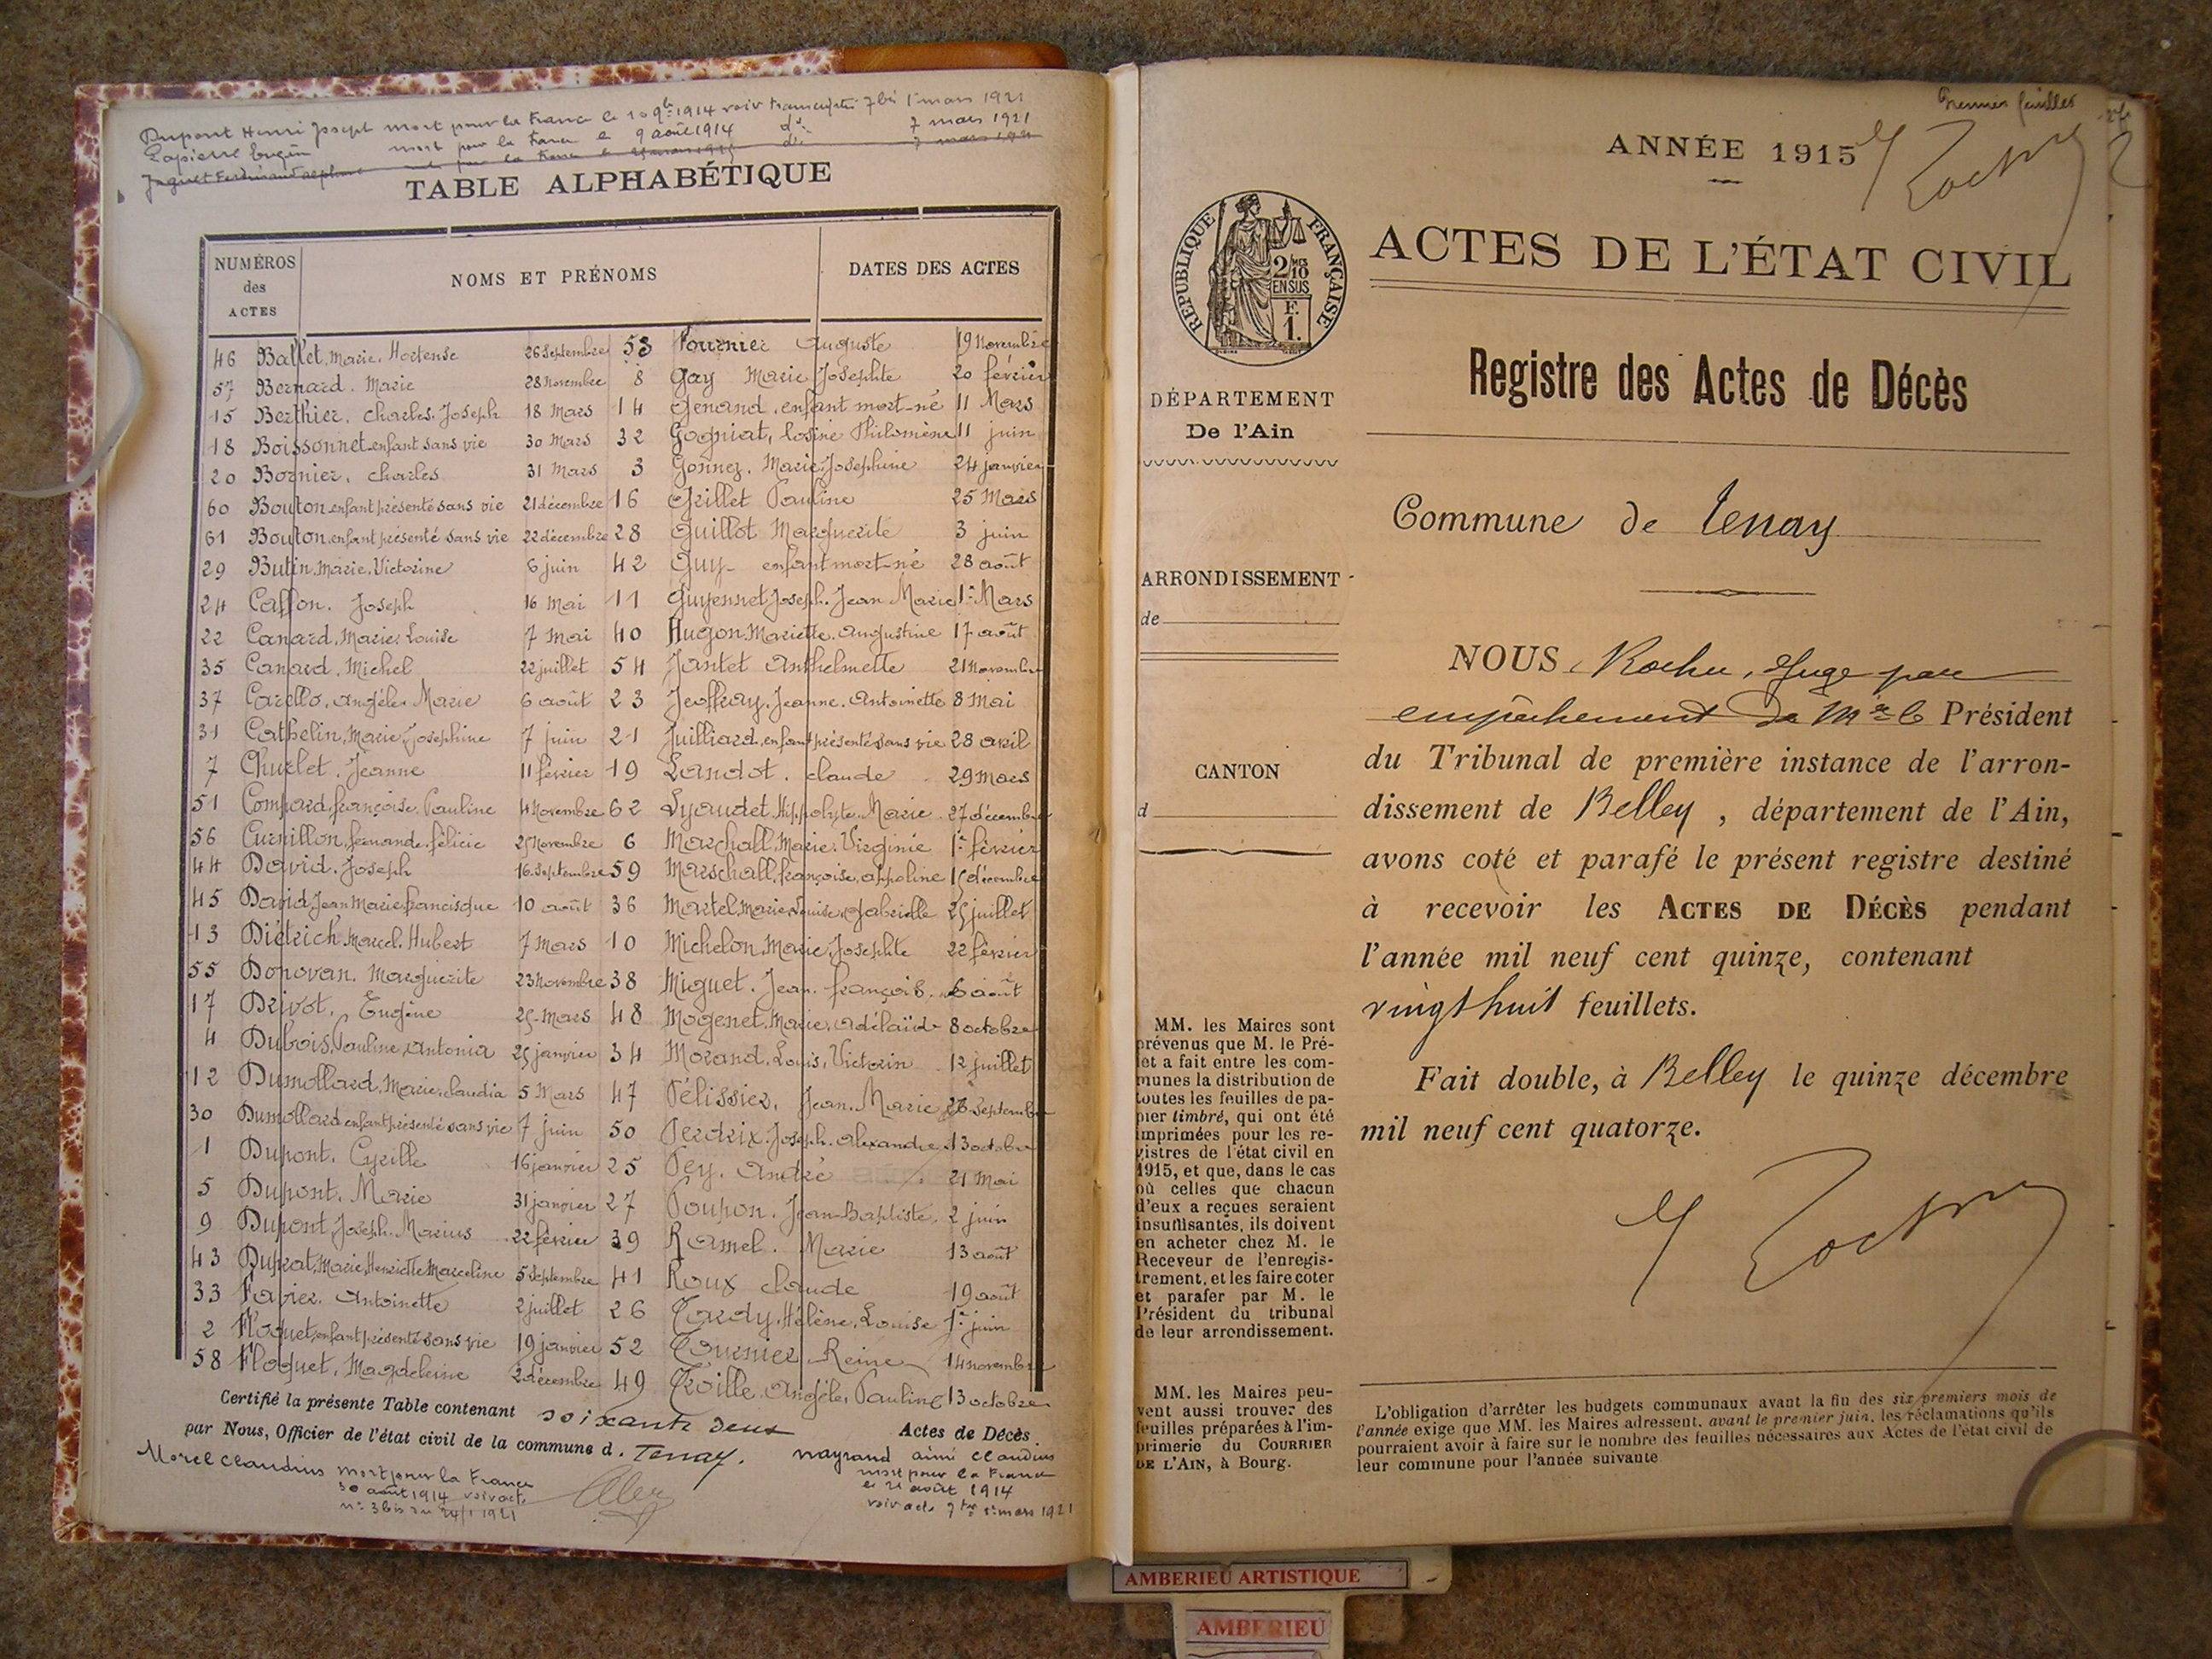 Dupont Henri Joseph mort pour la France le 10 9bre 1914 voir transcription 7 bis 1er mars 1921
Lapierre Eugène mort pour la France le 9 août 1914 do 7 mars 1921
Jaquet Ferdinand Alphonse mort pour la France le do 7 mars 1921
TABLE ALPHABÉTIQUE
NUMÉROS des ACTES
NOMS ET PRÉNOMS
DATES DES ACTES
46 Ballet, Marie, Hortense 26 Septembre
57 Bernard, Marie 28 Novembre
15 Berthier, Charles, Joseph 18 Mars
18 Boissonnet enfant sans vie 30 Mars
20 Bornier, Charles 31 Mars
60 Bouton enfant présenté sans vie 21 décembre
61 Bouton enfant présenté sans vie 22 décembre
29 Butin, Marie, Victorine 6 juin
24 Caffon, Joseph 16 Mai
22 Canard, Marie, Louise 7 Mai
35 Canard, Michel 22 juillet
37 Carello, Angèle, Marie 6 août
31 Cathelin, Marie, Joséphine 7 juin
7 Churlet, Jeanne 11 février
51 Compard, françoise, Pauline 4 Novembre
56 Curnillon, fernande, félicie 25 Novembre
44 David, Joseph 16 Septembre
45 David Jean Marie francisque 10 août
13 Diétrich, Marcel, Hubert 7 Mars
55 Donovan, Marguerite 23 Novembre
17 Drivot, Eugène 25 Mars
4 Dubois, Pauline, Antonia 25 janvier
12 Dumollard, Marie, Claudia 5 Mars
30 Dumollard enfant présenté sans vie 7 juin
1 Dupont, Cyrille 16 janvier
5 Dupont, Marie 31 janvier
9 Dupont, Joseph, Marius 22 février
43 Duprat, Marie, Henriette Marceline 5 Septembre
33 Favier, Antoinette 2 juillet
2 Floquet, enfant présenté sans vie 19 janvier
58 Floquet, Magdeleine 2 décembre
53 Fournier Auguste 19 Novembre
8 Gay Marie Josephte 20 février
14 Genand, enfant mort-né 11 Mars
32 Gogniat, Rosine Philomène 11 juin
3 Gonnez, Marie, Joséphine 24 janvier
16 Grillet Pauline 25 Mars
28 Guillot Marguerite 3 juin
42 Guy enfant mort-né 28 août
11 Guyennet Joseph, Jean Marie 1er Mars
40 Hugon, Mariette, Augustine 17 août
54 Jantet Anthelmette 21 Novembre
23 Jeoffray, Jeanne, Antoinette 8 Mai
21 Juilliard, enfant présenté sans vie 28 avril
19 Landot, Claude 29 Mars
62 Lyaudet, Hippolyte, Marie 27 décembre
6 Marchall, Marie, Virginie 1er février
59 Marschall, françoise, appoline 15 décembre
36 Martel, Marie, Louise, Gabrielle 25 juillet
10 Michelon, Marie, Josephte 22 février
38 Miguet, Jean, françois 6 août
48 Mogenet, Marie, Adélaïde 8 octobre
34 Morand, Louis, Victorin 12 juillet
47 Pélissier, Jean, Marie 26 Septembre
50 Perdrix, Joseph, Alexandre 13 octobre
25 Pey, André 21 Mai
27 Poupon, Jean-Baptiste 2 juin
39 Ramel, Marie 13 août
41 Roux Claude 19 août
26 Tardy, Hélène, Louise 1er juin
52 Tournier Reine 14 novembre
49 Troille, Angèle, Pauline 13 octobre
Certifié la présente Table contenant soixante deux Actes de Décès
par Nous, Officier de l'état civil de la commune d. Tenay.
Morel Claudius mort pour la France
30 août 1914 voir acte
n° 3 bis du 24/1 1921
Mayrand aimé Claudius
mort pour la France
le 21 août 1914
voir acte 7ter 1er mars 1921
Premier feuillet
ANNÉE 1915
RÉPUBLIQUE FRANÇAISE
2/10 MES
EN SUS
F.
1.
ACTES DE L'ÉTAT CIVIL
Registre des Actes de Décès
DÉPARTEMENT
De l'Ain
ARRONDISSEMENT
de
CANTON
d
MM. les Maires sont
prévenus que M. le Pré-
fet a fait entre les com-
munes la distribution de
toutes les feuilles de pa-
pier timbré, qui ont été
imprimées pour les re-
gistres de l'état civil en
1915, et que, dans le cas
où celles que chacun
d'eux a reçues seraient
insuffisantes, ils doivent
en acheter chez M. le
Receveur de l'enregis-
trement, et les faire coter
et parafer par M. le
Président du tribunal
de leur arrondissement.
MM. les Maires peu-
vent aussi trouver des
feuilles préparées à l'im-
primerie du COURRIER
DE L'AIN, à Bourg.
Commune de Tenay
NOUS, Rochu, Juge par
empêchement de Mr le Président
du Tribunal de première instance de l'arron-
dissement de Belley, département de l'Ain,
avons coté et parafé le présent registre destiné
à recevoir les ACTES DE DÉCÈS pendant
l'année mil neuf cent quinze, contenant
vingt huit feuillets.
Fait double, à Belley le quinze décembre
mil neuf cent quatorze.
L'obligation d'arrêter les budgets communaux avant la fin des six premiers mois de
l'année exige que MM. les Maires adressent, avant le premier juin, les réclamations qu'ils
pourraient avoir à faire sur le nombre des feuilles nécessaires aux Actes de l'état civil de
leur commune pour l'année suivante
AMBERIEU ARTISTIQUE
AMBERIEU